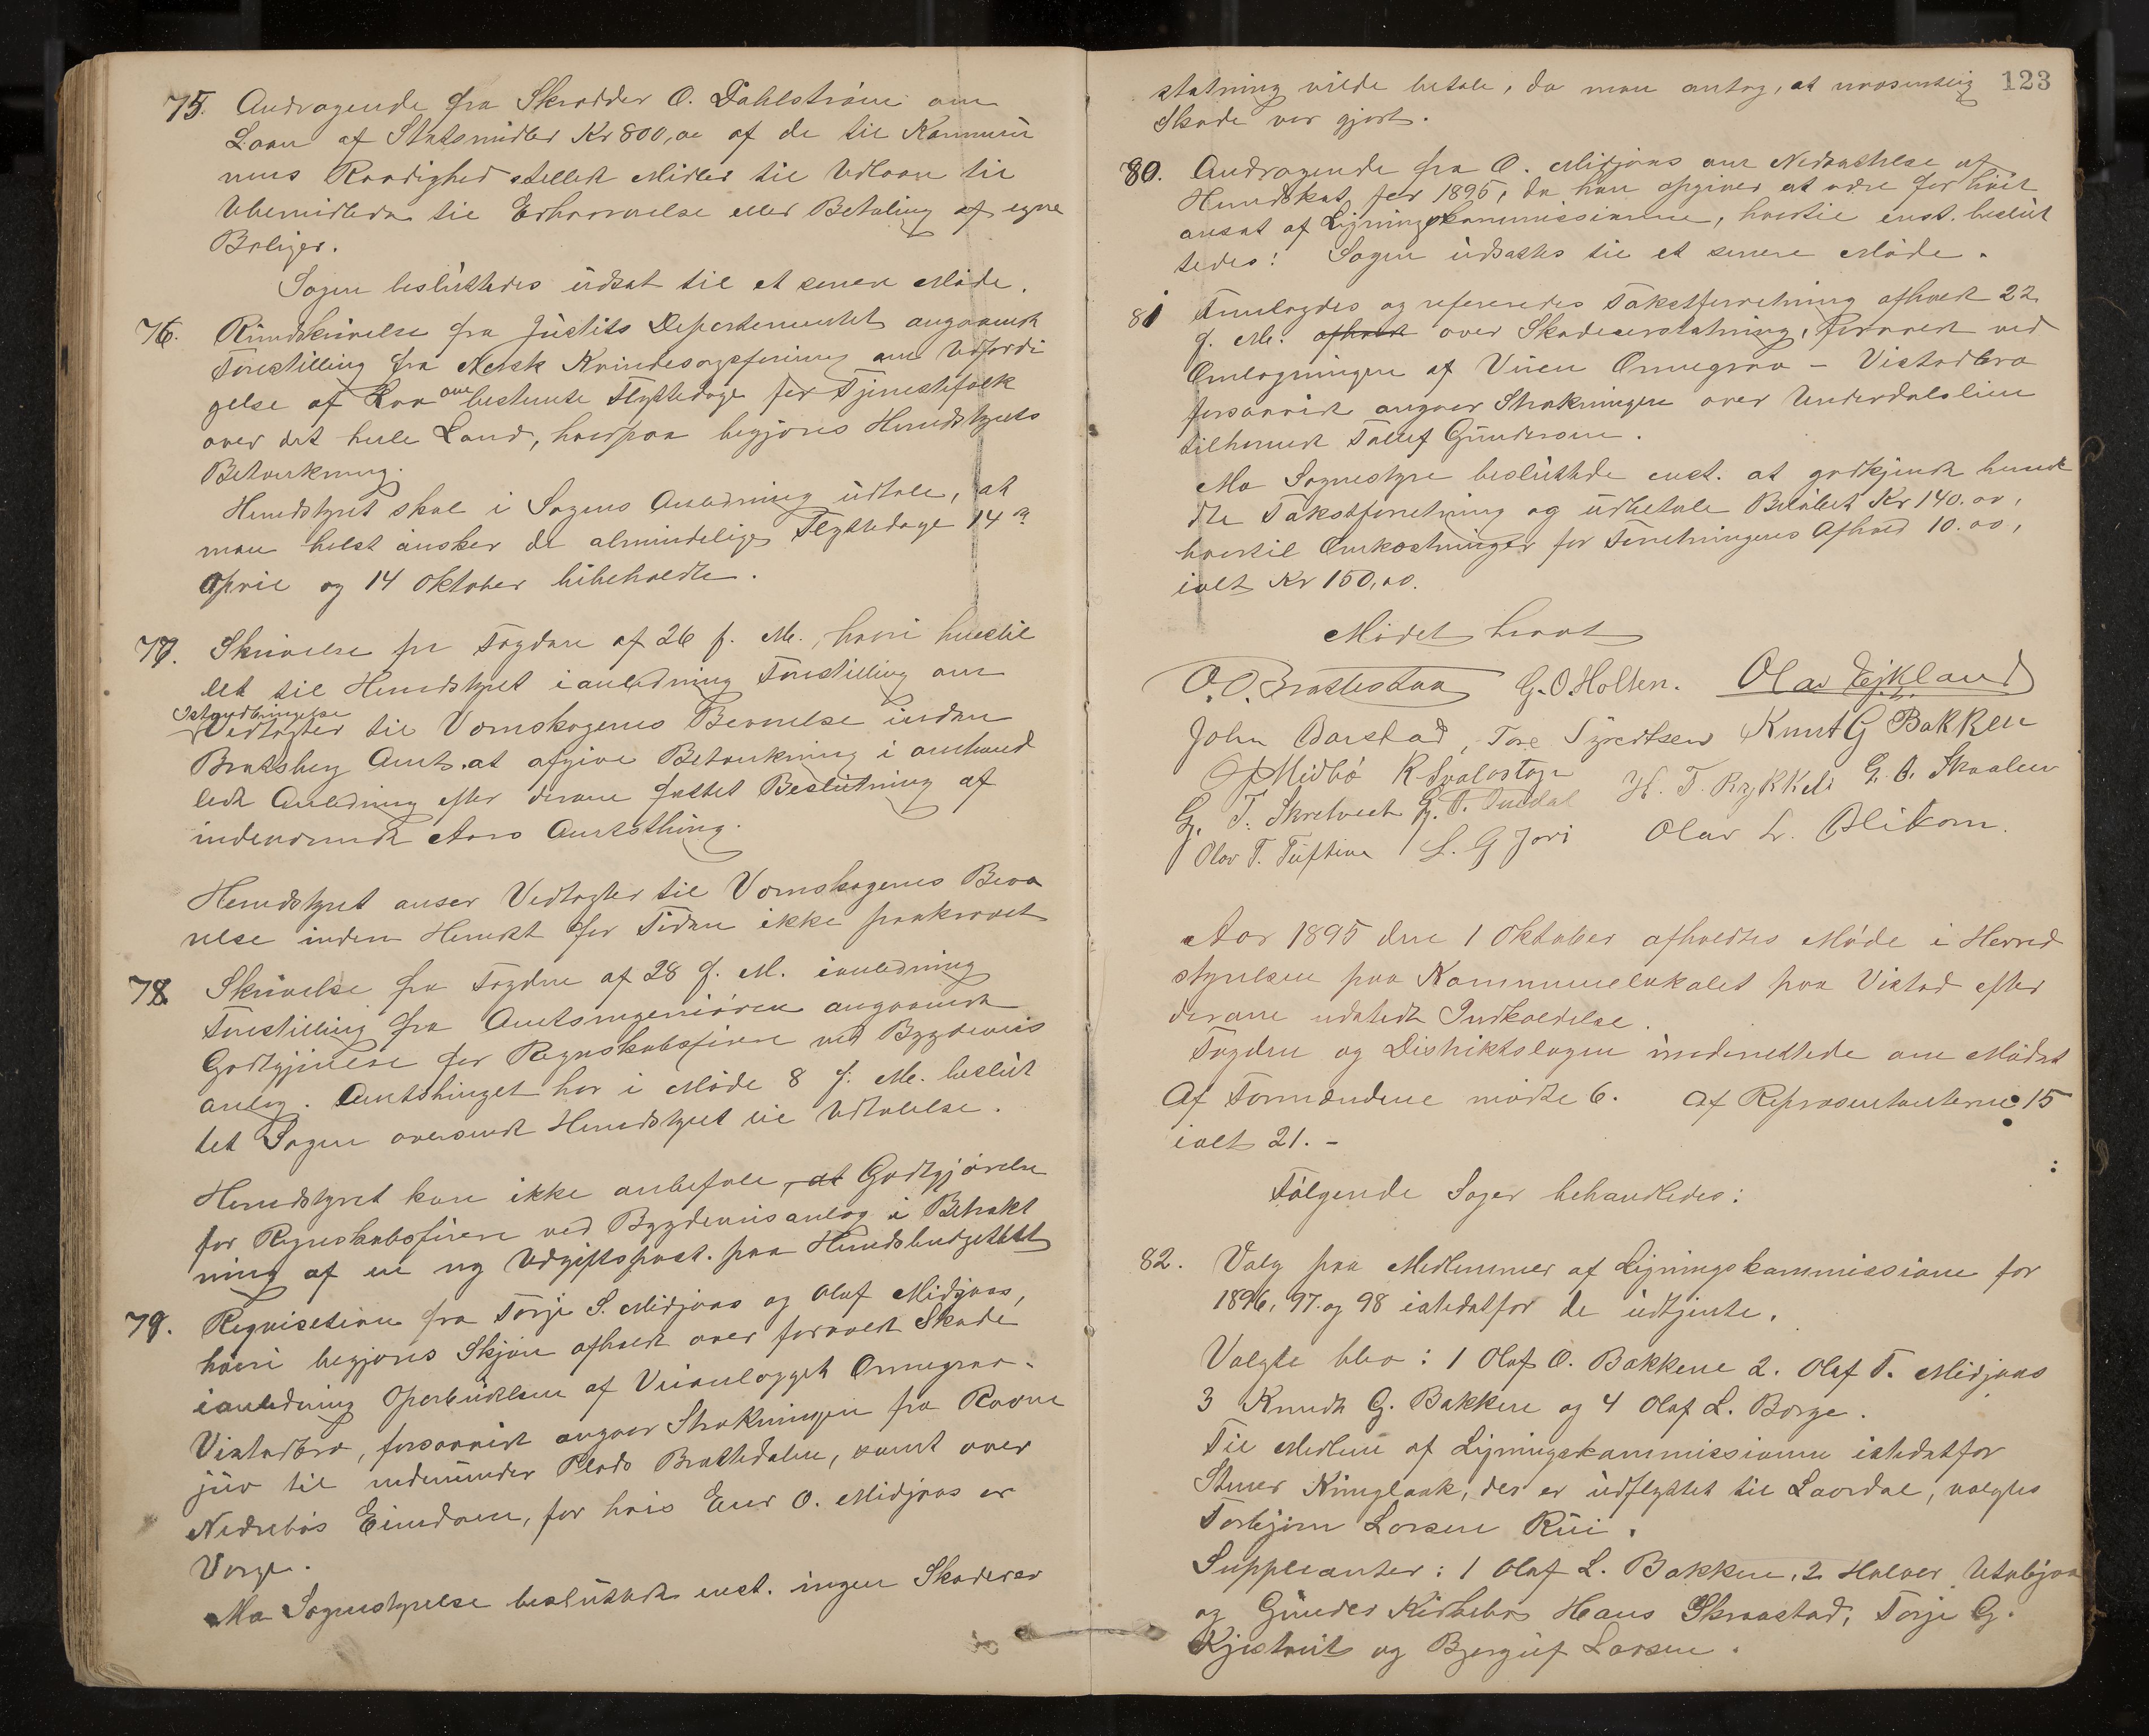 75. Andragende fra Skrædder O. Dahlstrøm om
Laan af Statsmidler Kr 800,oo af de til Kommu
nens Raadighed stillede Midler til Udlaan til
Ubemidlede til Erhvervelse eller Betaling af egne
Boliger.
Sagen besluttedes udsat til et senere Møde.
76. Rundskrivelse fra Justits Departementet angaaende
Forestilling fra Norsk Kvindesagsforening om Udfærdi
gelse af Lov om bestemte Flyttedage for Tjenestefolk
over det hele Land, hvorpaa begjæres Herredstyrets
Betænkning.
Herredstyret skal i Sagens Anledning udtale, at
man helst ønsker de almindelige Flyttedage 14de
April og 14 Oktober bibeholdte.
77. Skrivelse fra Fogden af 26 f. M., hvori henstil
let til Herredstyret i anledning Forestilling om
Istandbringelse
Vedtægter til Værnskogenes Bevarelse inden
Bratsberg Amt. at afgive Betænkning i omhand
lede Anledning efter derom fattet Beslutning af
indeværende Aars Amtsthing.
Herredstyret anser Vedtægter til Værnskogenes Beva
relse inden Herredet for Tiden ikke paakrævet
78 Skrivelse fra Fogden af 28 f. M. i anledning
Forestilling fra Amtsingeniøren angaaende
Godtgjørelse for Regnskabsførere ved Bygdeveis
anlæg. Amtsthinget har i Møde 8 f. M. beslut
tet Sagen oversendt Herredstyret til Udtalelse.
Herredstyret kan ikke anbefale, at Godtgjørelse
for Regnskabsførere ved Bygdeveisanlæg i Betrakt
ning af en ny Udgiftspost. paa Herredsbudgettet
79. Requisition fra Torje S. Midjaas og Olaf Midjaas,
hvori begjæres Skjøn afholdt over forvoldt Skade
i anledning Oparbeidelsen af Veianlægget Ormegrav-
Vistadbro, forsaavidt angaar Strækningen fra Ravne
juv til nedenunder Plads Brattedalen, samt over
Nedrebøs Eiendom, for hvis Eier O. Midjaas er
Værge.
Mo Sognestyrelse besluttede enst. ingen Skadeser
123
statning vilde betale, da man antog, at uvæsentlig
Skade var gjort.
80. Andragende fra O. Midjaas om Nedsættelse af
Herredskat for 1895, da han opgiver at være for høit
ansat af Ligningskommissionen, hvortil enst. beslut
tedes: Sagen udsættes til et senere Møde.
81 Fremlagdes og refereredes Takstforretning afholdt 22
f. M. afholdt over Skadeserstatning, forvoldt ved
Omlægningen af Veien Ormegrav - Vistadbro
forsaavidt angaar Strækningen over Underdalslien
tilhørende Tallef Gunderson.
Mo Sognestyre besluttede enst. at godkjende hen
dte Takstforretning og udbetale Beløbet Kr 140.oo,
hvortil Omkostninger for Forretningens Afhold 10.oo,
ialt Kr 150,oo.
Mødet hævet
O.O. Brattestaa G. O Holten. Olav Ejkland
John Børstad, Tore Sjurdtsen Knut G Bakken
O Midbø K Svalastoga H. T. Rykkeli G. A. Skaalen
G. T. Skretveit G. T. Juvdal
Olav T. Tufteine L. G Jori Olav L. Blikom.
Aar 1895 den 1 Oktober afholdtes Møde i Herred
styrelsen paa Kommunelokalet paa Vistad efter
derom udstedt Indkaldelse.
Fogden og Distriktslægen underrettede om Mødet
Af Formændene mødte 6. Af Repræsentanterne 15
ialt 21. -
Følgende Sager behandledes:
82. Valg paa Medlemmer af Ligningskommissionen for
1896, 97 og 98 istedetfor de udtjente.
Valgte blev: 1 Olaf O. Bakkene 2. Olaf T. Midjaas
3 Knudt G. Bakken og 4 Olaf L. Borge.
Til Medlem af Ligningskommissionen istedetfor
Stener Kinglaak, der er udflyttet til Laurdal, valgtes
Torbjørn Larsen Rui.
Suppleanter: 1 Olaf L. Bakken, 2 Halvor Utabjaa
og Gunder Kidtebø, Hans Skraastad, Torje G.
Kjestveit og Bjergulf Larsen.